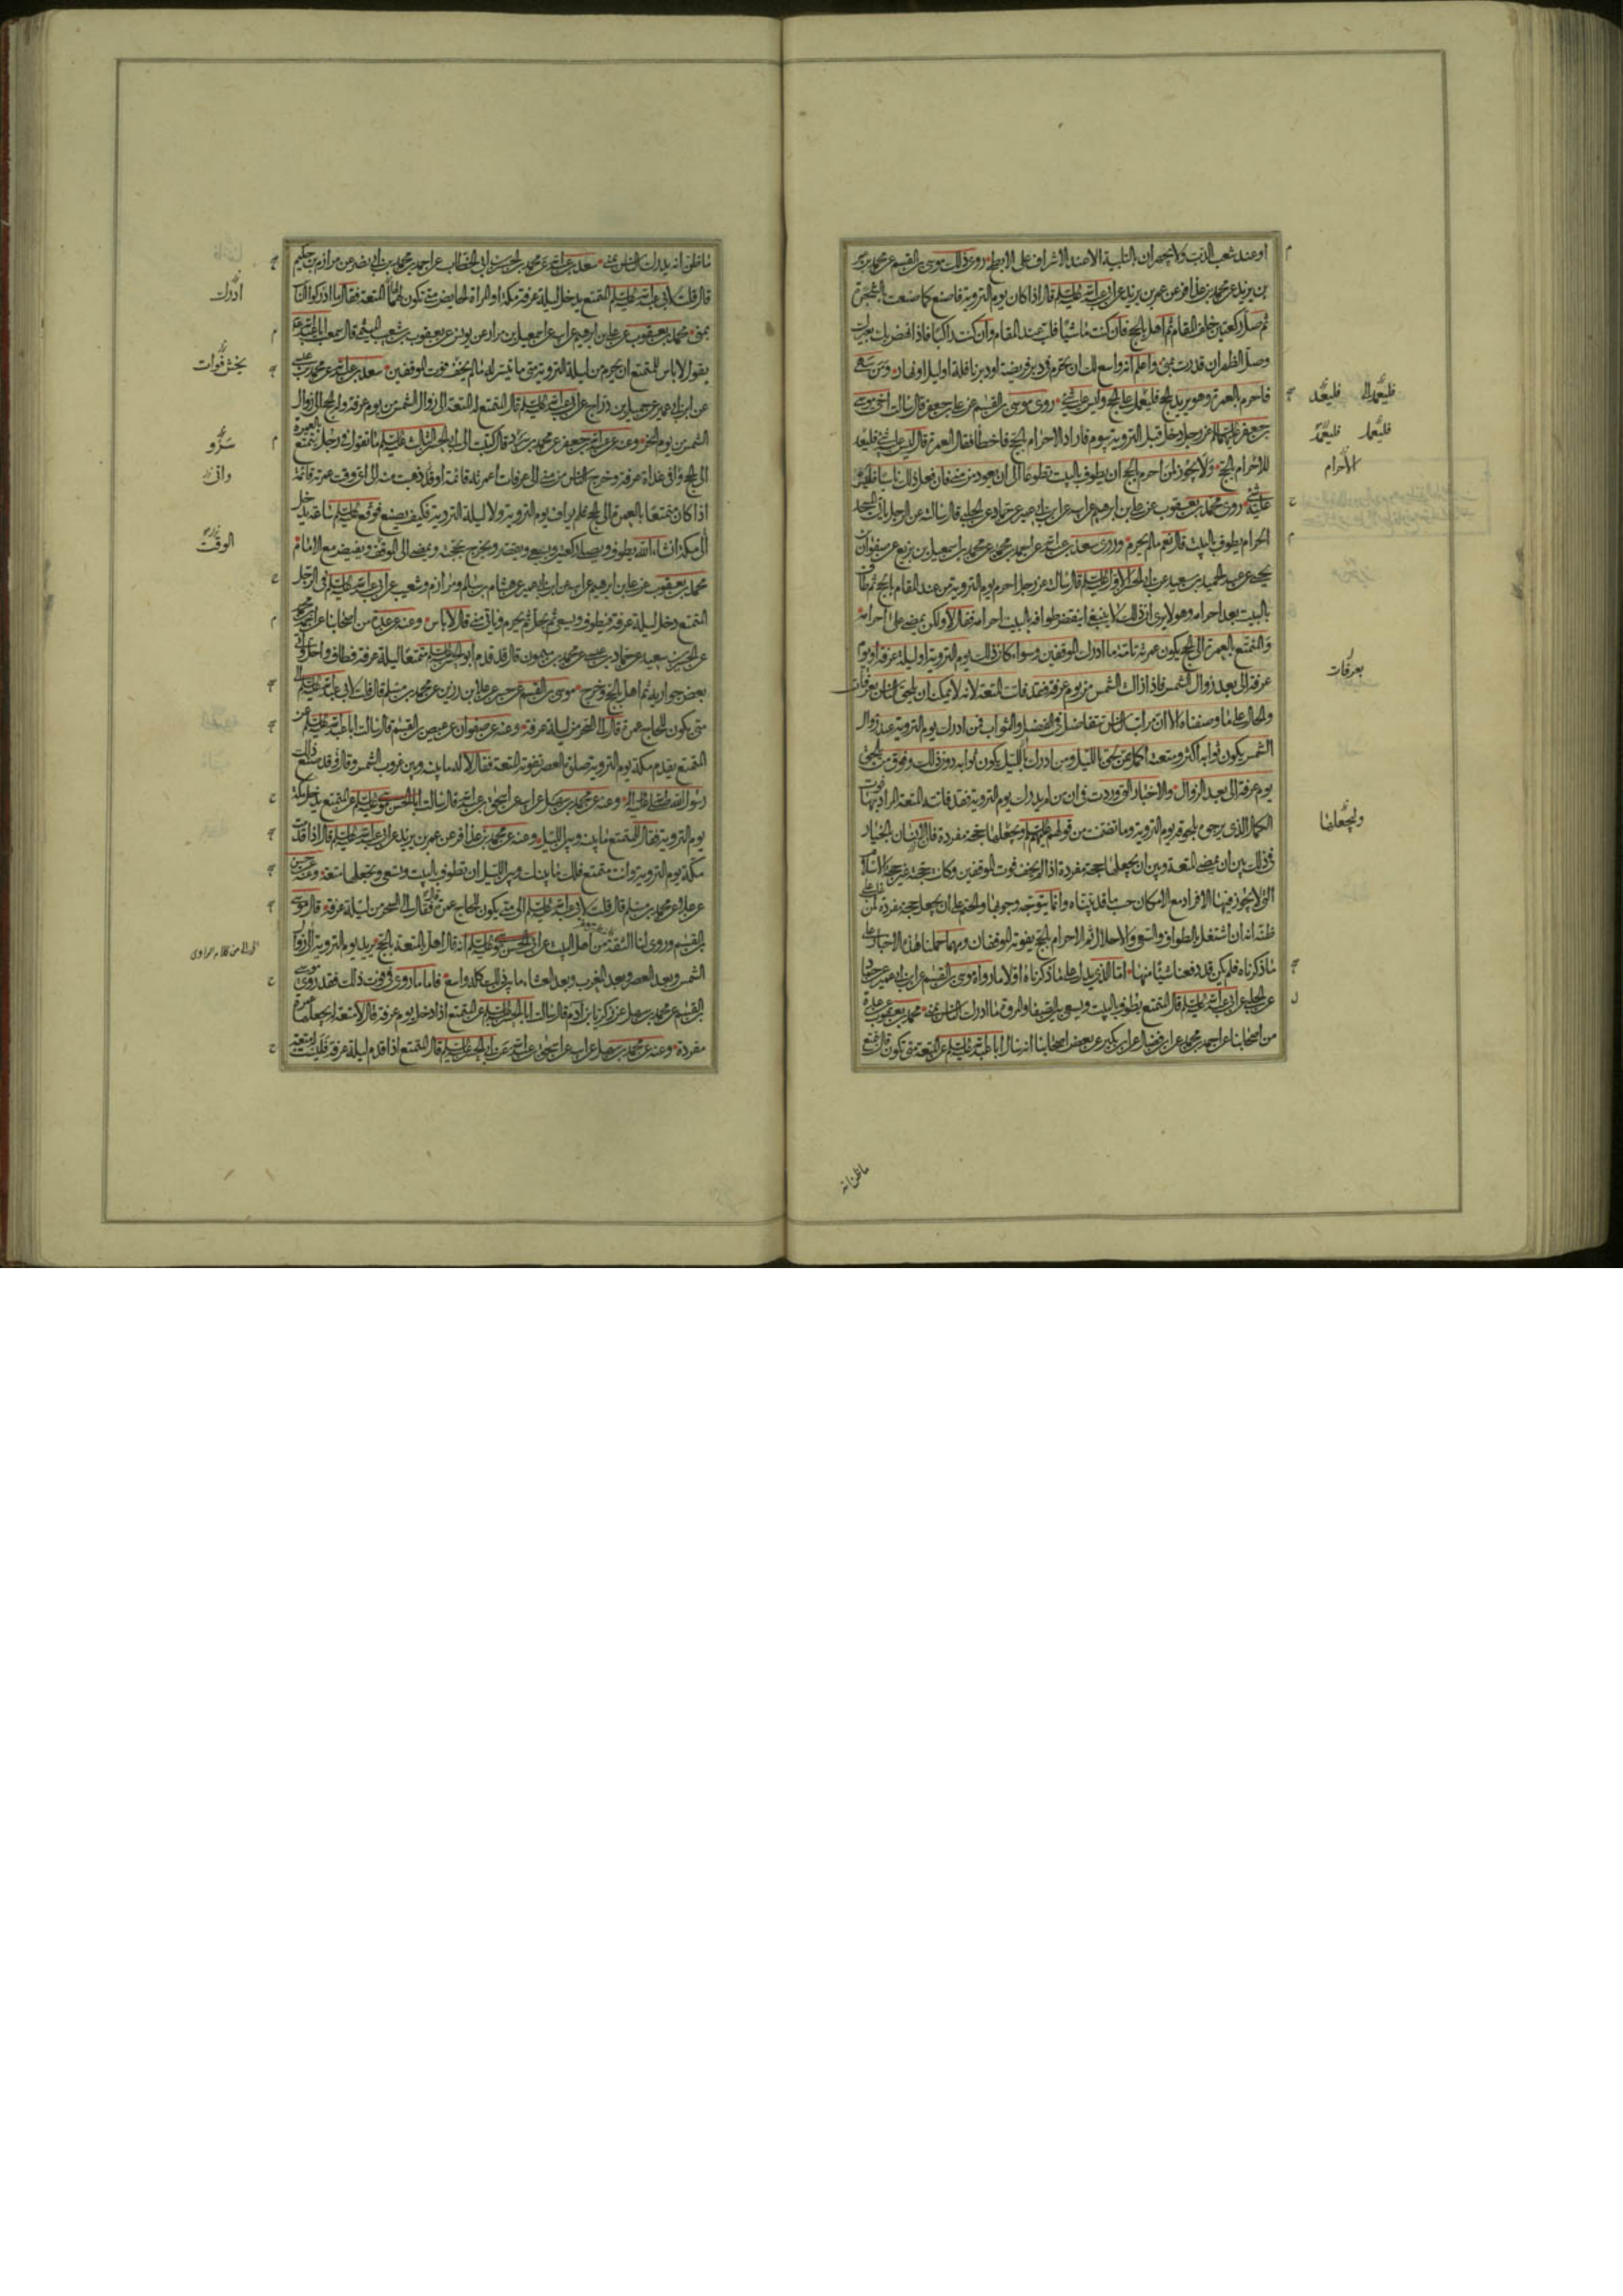 او عند شعب الذئب ولا يجهران بالتلبية الا عند الاشراف على الابطح روى ذلك موسى بن القسم عن محمد بن عمر
بن يزيد عن محمد بن عذافر عن عمر بن يزيد عن ابى عبد الله عليه السلم قال اذا كان يوم التروية فاصنع كما صنعت بالشجرة
ثم صل ركعتين خلف المقام ثم اهل بالحج فان كنت ماشيا فلب عند المقام وان كنت راكبا فاذا نهض بك بعيرك
وصل الظهر ان قدرت بمنى واعلم انه واسع لك ان تحرم فى دبر فريضة او دبر نافلة او ليل او نهار ومن سهى
فاحرم بالعمرة وهو يريد الحج فليعمل على الحج وليس عليه شئ روى موسى بن القسم عن على بن جعفر قال سالت اخى موسى
بن جعفر عليهما السلم عن رجل دخل قبل التروية بيوم فاراد الاحرام بالحج فاخطا فقال العمرة قال ليس عليه شئ فليعد
للاحرام بالحج ولا يجوز لمن احرم بالحج ان يطوف بالبيت تطوعا الى ان يعود من منى فان فعل ذلك ناسيا فليس
عليه شئ روى محمد بن يعقوب عن على بن ابرهيم عن ابيه عن ابن ابى عمير عن حماد عن الحلبى قال سالته عن الرجل ياتى المسجد
الحرام يطوف بالبيت قال نعم ما لم يحرم وروى سعد بن عبد الله عن احمد بن محمد عن محمد بن اسمعيل بن بزيع عن صفوان بن
يحيى عن عبد الحميد بن سعيد عن ابى الحسن الاول عليه السلم قال سالته عن رجل احرم يوم التروية من عند المقام بالحج ثم طاف
بالبيت بعد احرامه وهو لا يرى ان ذلك لا ينبغى اينقض طوافه بالبيت احرامه فقال لا ولكن يمضى على احرامه
والمتمتع بالعمرة الى الحج يكون عمرته تامة ما ادرك الموقفين وسواء كان ذلك يوم التروية او ليلة عرفة او يوم
عرفة الى بعد زوال الشمس فاذا زالت الشمس من يوم عرفة فقد فاتت المتعة لانه لا يمكن ان يلحق الناس بعرفات
والحال على ما وصفناه الا ان مراتب الناس تتفاضل فى الفضل والثواب فمن ادرك يوم التروية عند زوال
الشمس يكون ثوابه اكثر ومتعته اكمل ممن يلحق بالليل ومن ادرك بالليل يكون ثوابه دون ذلك وفوق من يلحق
يوم عرفة الى بعد الزوال والاخبار التى وردت فى ان من لم يدرك يوم التروية فقد فاتته المتعة المراد بها فوت
الكمال الذى يرجى بلحوقه يوم التروية وما تضمنت من قولهم عليهم السلم ويجعلها حجة مفردة فالانسان بالخيار
فى ذلك بين ان يمضى المتعة وبين ان يجعلها حجة مفردة اذا لم يخف فوت الموقفين وكانت حجته غير حجة الاسلام
التى لا يجوز فيها الافراد مع الامكان حسب ما قد بيناه وانما يتوجه وجوبها والحتم على ان يجعل حجته مفردة لمن غلب على
ظنه انه ان اشتغل بالطواف والسعى والاحلال ثم الاحرام بالحج يفوته الموقفان ومهما حملنا هذه الاخبار على
ما ذكرناه فلم يكن قد دفعنا شيئا منها اما الذى يدل على ما ذكرناه اولا ما رواه موسى بن القسم عن ابن ابى عمير عن حماد
عن الحلبى عن ابى عبد الله عليه السلم قال المتمتع يطوف بالبيت ويسعى بين الصفا والمروة ما ادرك الناس بمنى محمد بن يعقوب عن عدة
من اصحابنا عن احمد بن محمد عن ابن فضال عن ابن بكير عن بعض اصحابنا انه سال ابا عبد الله عليه السلم عن المتعة متى تكون قال يتمتع
فليعمد الى فليعد
فليعمل فليعد
الاحرام
بعرفات
ويجعلها
ما ظن انه
ما ظن انه يدرك الناس بمنى سعد بن عبد الله عن محمد بن الحسين بن ابى الخطاب عن احمد بن محمد بن ابى نصر عن مرازم بن حكيم
قال قلت لابى عبد الله عليه السلم المتمتع يدخل ليلة عرفة مكة او المراة الحايض متى تكون لهما المتعة فقال ما ادركوا الناس
بمنى محمد بن يعقوب عن على بن ابرهيم عن ابيه عن اسمعيل بن مرار عن يونس عن يعقوب بن شعيب الميثمى قال سمعت ابا عبد الله
يقول لا باس للمتمتع ان يحرم من ليلة التروية متى ما تيسر له ما لم يخف فوت الموقفين سعد بن عبد الله عن محمد بن عيسى
عن ابن ابى عمير عن جميل بن دراج عن ابى عبد الله عليه السلم قال المتمتع له المتعة الى زوال الشمس من يوم عرفة وله الحج الى زوال
الشمس من يوم النحر وعنه عن عبد الله بن جعفر عن محمد بن سرد قال كتبت الى ابى الحسن الثالث عليه السلم ما تقول فى رجل يتمتع بالعمرة
الى الحج وافى غداة عرفة وخرج الناس من منى الى عرفات اعمرته قائمة او قد ذهبت منه الى اى وقت عمرته قائمة
اذا كان متمتعا بالعمرة الى الحج فلم يواف يوم التروية ولا ليلة التروية فكيف يصنع فوقع عليه السلم ساعة يدخل
الى مكة ان شاء الله يطوف ويصلى ركعتين ويسعى ويقصر ويخرج بحجته ويمضى الى الموقف ويفيض مع الامام
محمد بن يعقوب عن على بن ابرهيم عن ابيه عن ابن ابى عمير عن هشام بن سالم ومرازم وشعيب عن ابى عبد الله عليه السلم فى الرجل
المتمتع دخل ليلة عرفة فيطوف ويسعى ثم يحل ثم يحرم وياتى منى قال لا باس وعنه عن عدة من اصحابنا عن احمد بن محمد
عن الحسين بن سعيد عن حماد بن عيسى عن محمد بن ميمون قال قد قدم ابو الحسن عليه السلم متمتعا ليلة عرفة فطاف واحل واتى
بعض جواريه ثم اهل بالحج وخرج موسى بن القسم عن حسن عن علا بن رزين عن محمد بن مسلم قال قلت لابى عبد الله عليه السلم الى
متى يكون للحاج عمرة قال الى السحر من ليلة عرفة وعنه عن صفوان عن عيص بن القسم قال سالت ابا عبد الله عليه السلم عن
المتمتع يقدم مكة يوم التروية صلوة العصر تفوته المتعة فقال لا له ما بينه وبين غروب الشمس وقال قد صنع ذلك
رسول الله صلى الله عليه واله وعنه عن محمد بن سهل عن ابيه عن اسحق بن عبد الله قال سالت ابا الحسن موسى عليه السلم عن المتمتع يدخل مكة
يوم التروية فقال للمتمتع ما بينه وبين الليل وعنه عن محمد بن عذافر عن عمر بن يزيد عن ابى عبد الله عليه السلم قال اذا قدمت
مكة يوم التروية وانت متمتع فلك ما بينك وبين الليل ان تطوف بالبيت وتسعى وتجعلها متعة وعنه عن حسن
عن علا عن محمد بن مسلم قال قلت لابى عبد الله عليه السلم الى متى يكون للحاج عمرة فقال الى السحر من ليلة عرفة قال موسى
بن القسم وروى لنا الثقة من اهل البيت عن ابى الحسن موسى عليه السلم انه قال اهل المتعة بالحج يريد يوم التروية زوال
الشمس وبعد العصر وبعد المغرب وبعد العشاء ما بين ذلك كله واسع فاما ما روى فى فوت ذلك فقد روى موسى
بن القسم عن محمد بن سهل عن زكريا بن ادم قال سالت ابا الحسن عليه السلم عن المتمتع اذا دخل يوم عرفة قال لا متعة له يجعلها عمرة
مفردة وعنه عن محمد بن سهل عن ابيه عن اسحق بن عبد الله عن ابى الحسن عليه السلم قال المتمتع اذا قدم ليلة عرفة فليست له متعة
ادرك
يخش فوات
سرو
وافى
الوقت